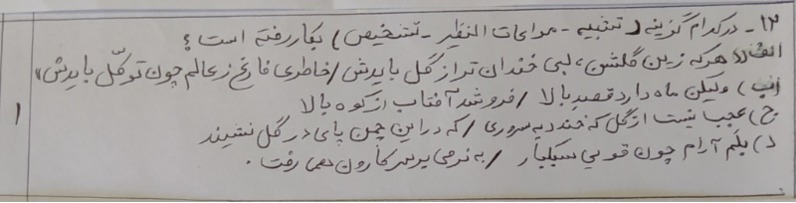 ۱۲- در کدام گزینه (تشبیه - مراعات النظیر - تشخیص) بکار رفته است؟
الف) هرکه زین گلشن، لبی خندان تر از گل بایدش / خاطری فارغ ز عالم چون توکّل بایدش»
ب) ولیکن ماه دارد قصد بالا / فروشد آفتاب از کوه بالا
ج) عجب نیست از گل که خندد به سروری / که در این چمن پای در گل نشیند
د) بلم آرام چون قویی سبکبار / به نرمی بر سر کارون همی رفت.
۱